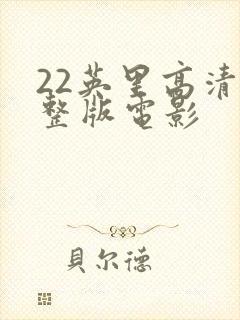 22英里高清
整版电影
貝尔德